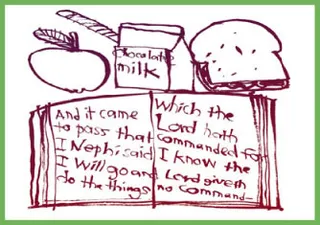 chocolate
milk
And it came
to pass that
I Nephi said
I will go and
do the things
which the
Lord hath
commanded for
I know the
Lord giveth
no command-